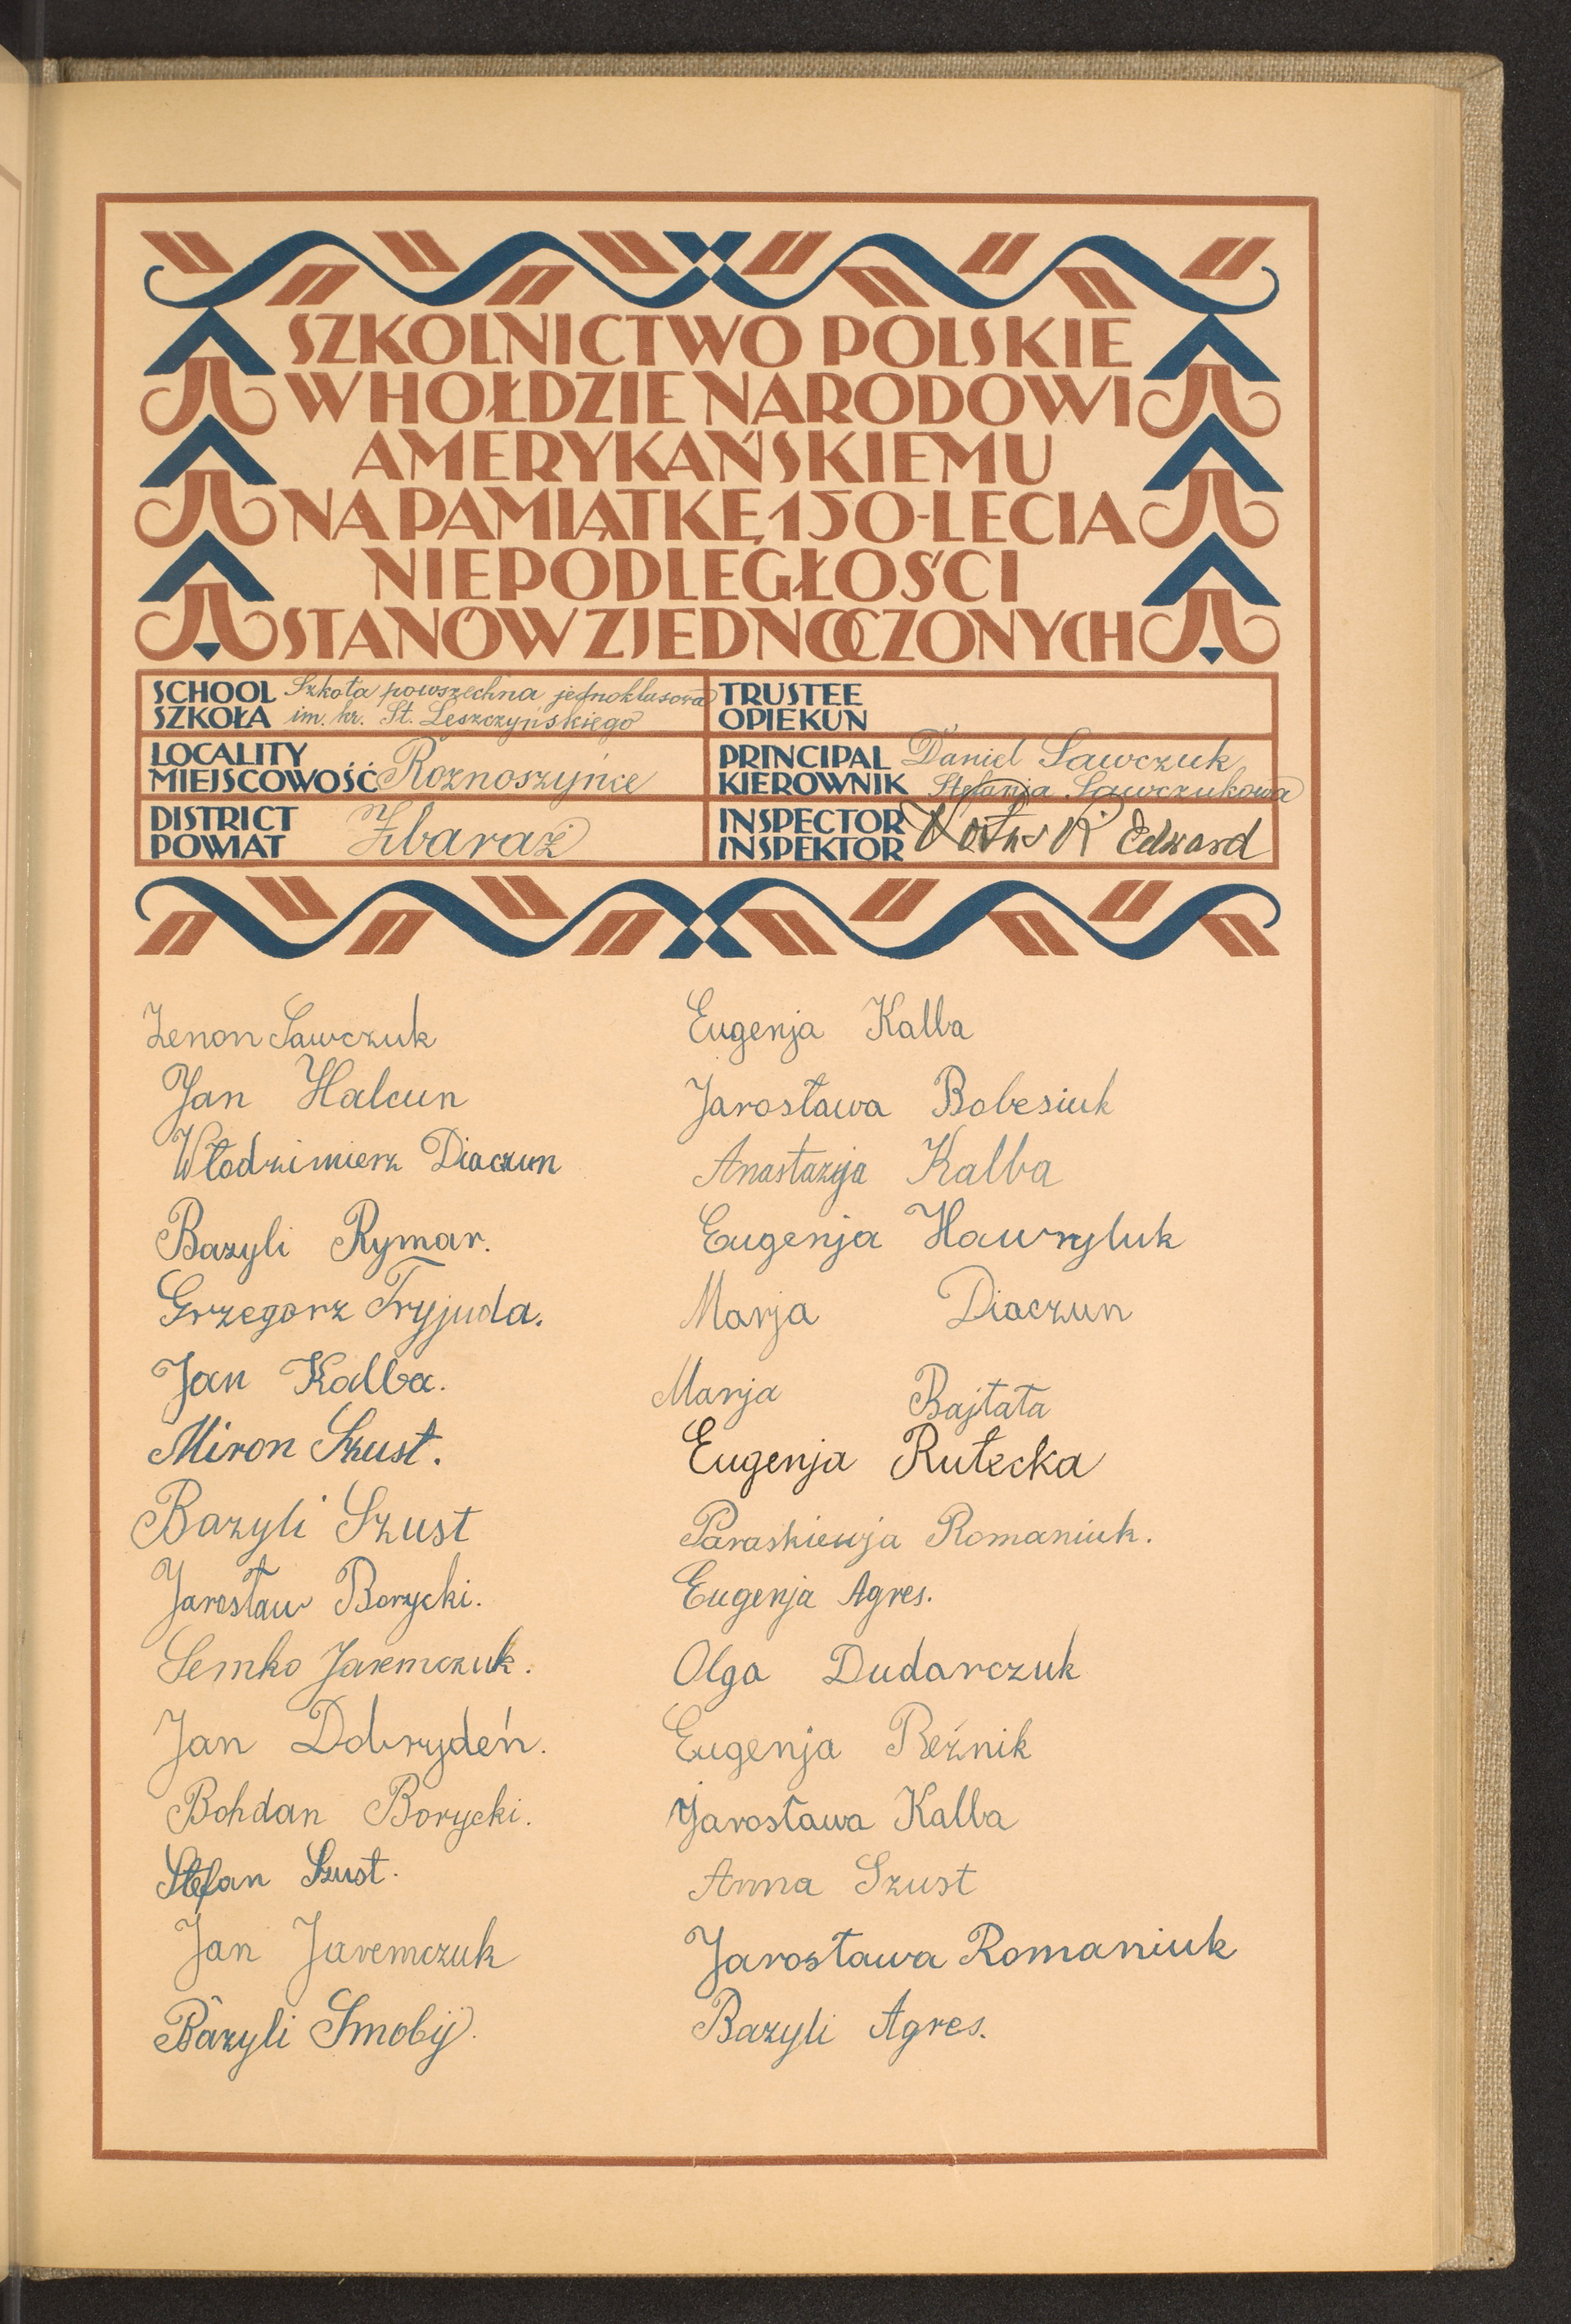 SZKOLNICTWO POLSKIE
W HOŁDZIE NARODOWI
AMERYKAŃSKIEMU
NA PAMIĄTKĘ 150-LECIA
NIEPODLEGŁOŚCI
STANÓW ZJEDNOCZONYCH
SCHOOL Szkoła powszechna jednoklasowa
SZKOŁA im. kr. St. Leszczyńskiego
TRUSTEE
OPIEKUN
LOCALITY
MIEJSCOWOŚĆ Roznoszyńce
PRINCIPAL Daniel Sawczuk
KIEROWNIK Stefanja Sawczukowa
DISTRICT
POWIAT Zbaraż
INSPECTOR
INSPEKTOR Edward
Zenon Sawczuk
Jan Halcun
Włodzimierz Diaczun
Bazyli Rymar.
Grzegorz Tryjuda.
Jan Kalba.
Miron Szust.
Bazyli Szust
Jarosław Borycki.
Semko Jaremczuk.
Jan Dobrydeń.
Bohdan Borycki.
Stefan Szust.
Jan Jaremczuk
Bazyli Smobij.
Eugenja Kalba
Jarosława Bobesiuk
Anastazja Kalba
Eugenja Hawryluk
Marja Diaczun
Marja Bajtała
Eugenja Rutecka
Paraskiewja Romaniuk.
Eugenja Agres.
Olga Dudarczuk
Eugenja Reźnik
Jarosława Kalba
Anna Szust
Jarosława Romaniuk
Bazyli Agres.